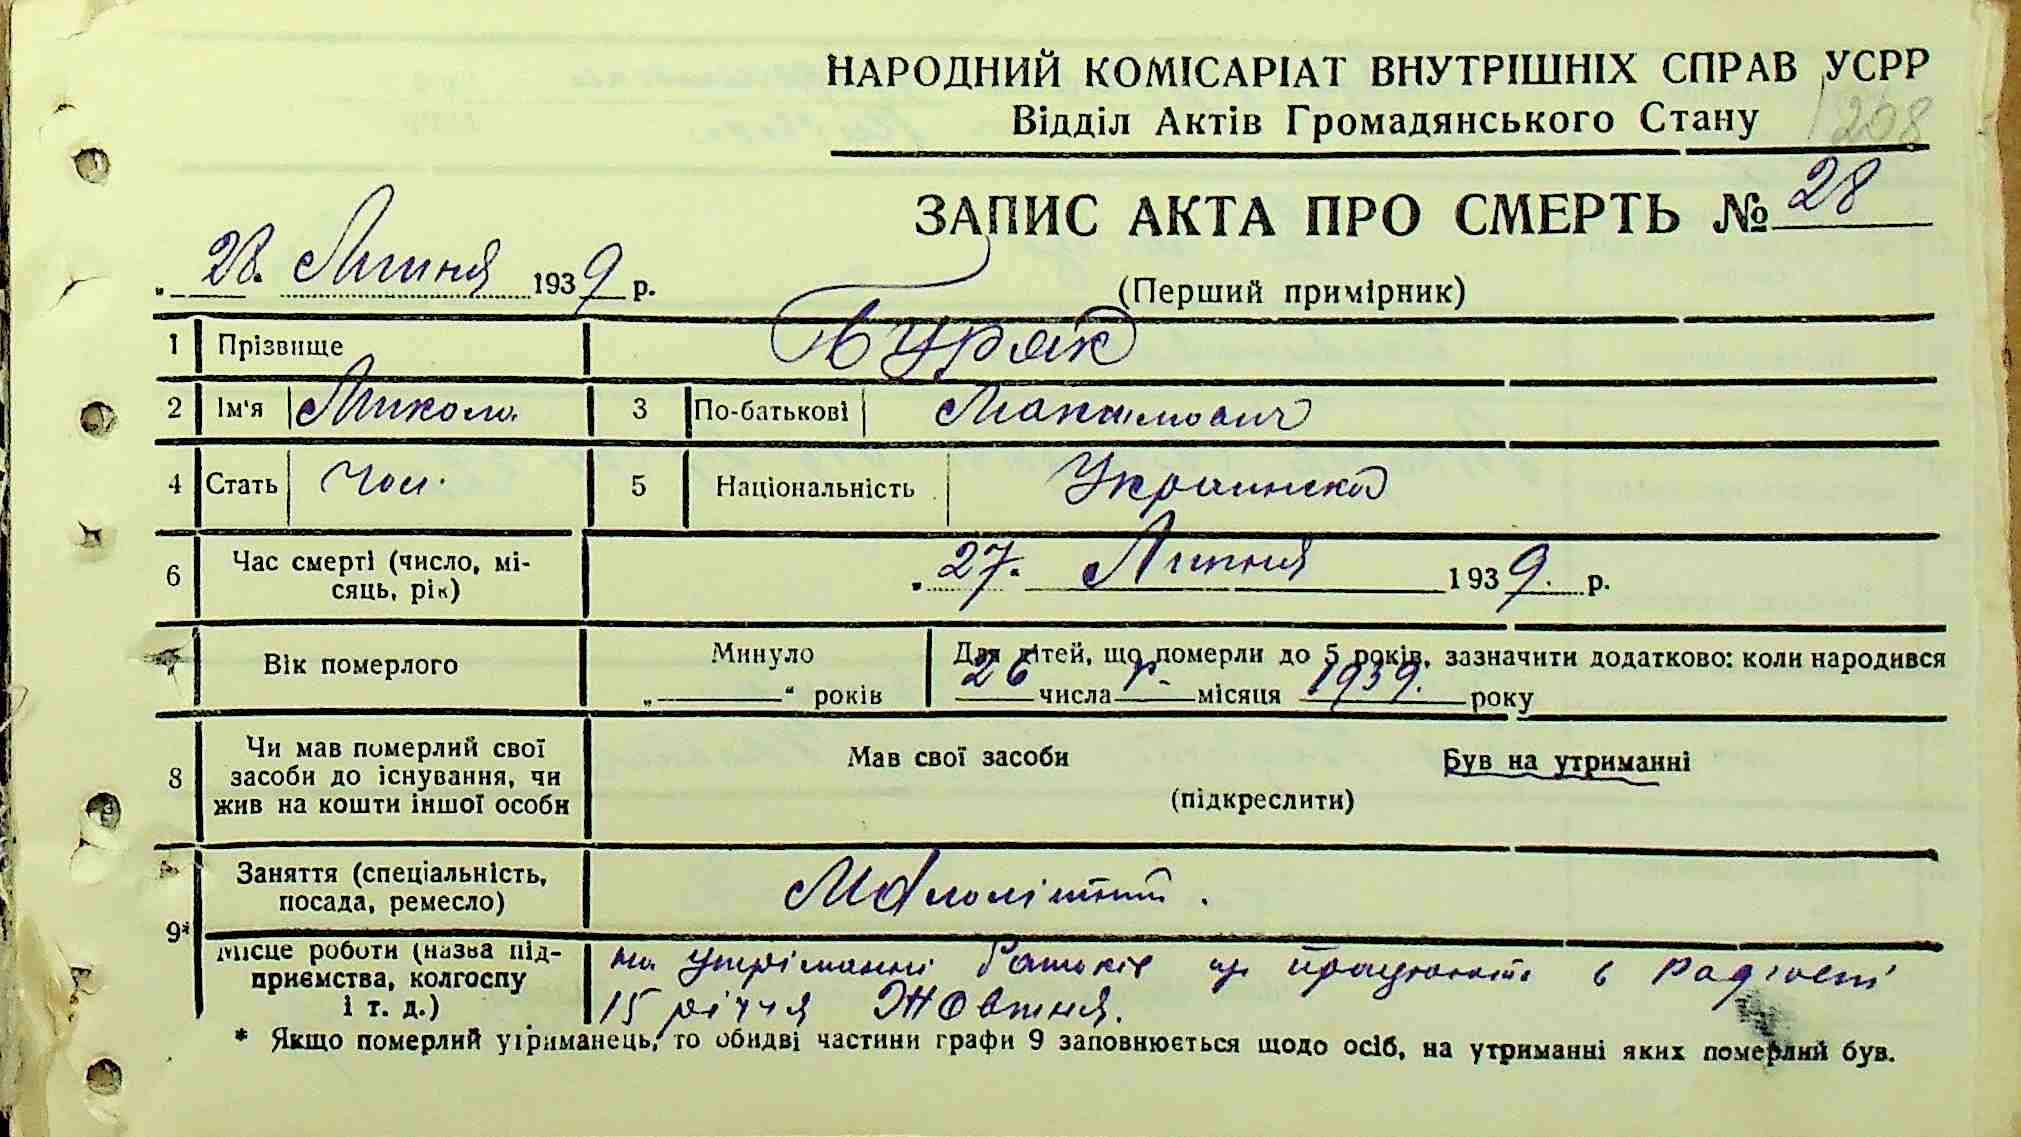 НАРОДНИЙ КОМІСАРІАТ ВНУТРІШНІХ СПРАВ УСРР
Відділ Актів Громадянського Стану
208
ЗАПИС АКТА ПРО СМЕРТЬ № 28
„ 28. Липня 1939 р.
(Перший примірник)
1 Прізвище Буряк
2 Ім'я Микола 3 По-батькові Максимович
4 Стать чол. 5 Національність Украинська
6 Час смерті (число, мі-
сяць, рік) „ 27. Липня 1939. р.
7 Вік померлого Минуло „ “ років
Для дітей, що померли до 5 років, зазначити додатково: коли народився
26 числа місяця 1939. року
8 Чи мав померлий свої
засоби до існування, чи
жив на кошти іншої особи
Мав свої засоби Був на утриманні
(підкреслити)
9* Заняття (спеціальність,
посада, ремесло) Малолітній.
Місце роботи (назва під-
приємства, колгоспу
і т. д.)
на утріманні батьків що працюють в радгоспі
15 річчя Жовтня.
* Якщо померлий утриманець, то обидві частини графи 9 заповнюється щодо осіб, на утриманні яких померлий був.